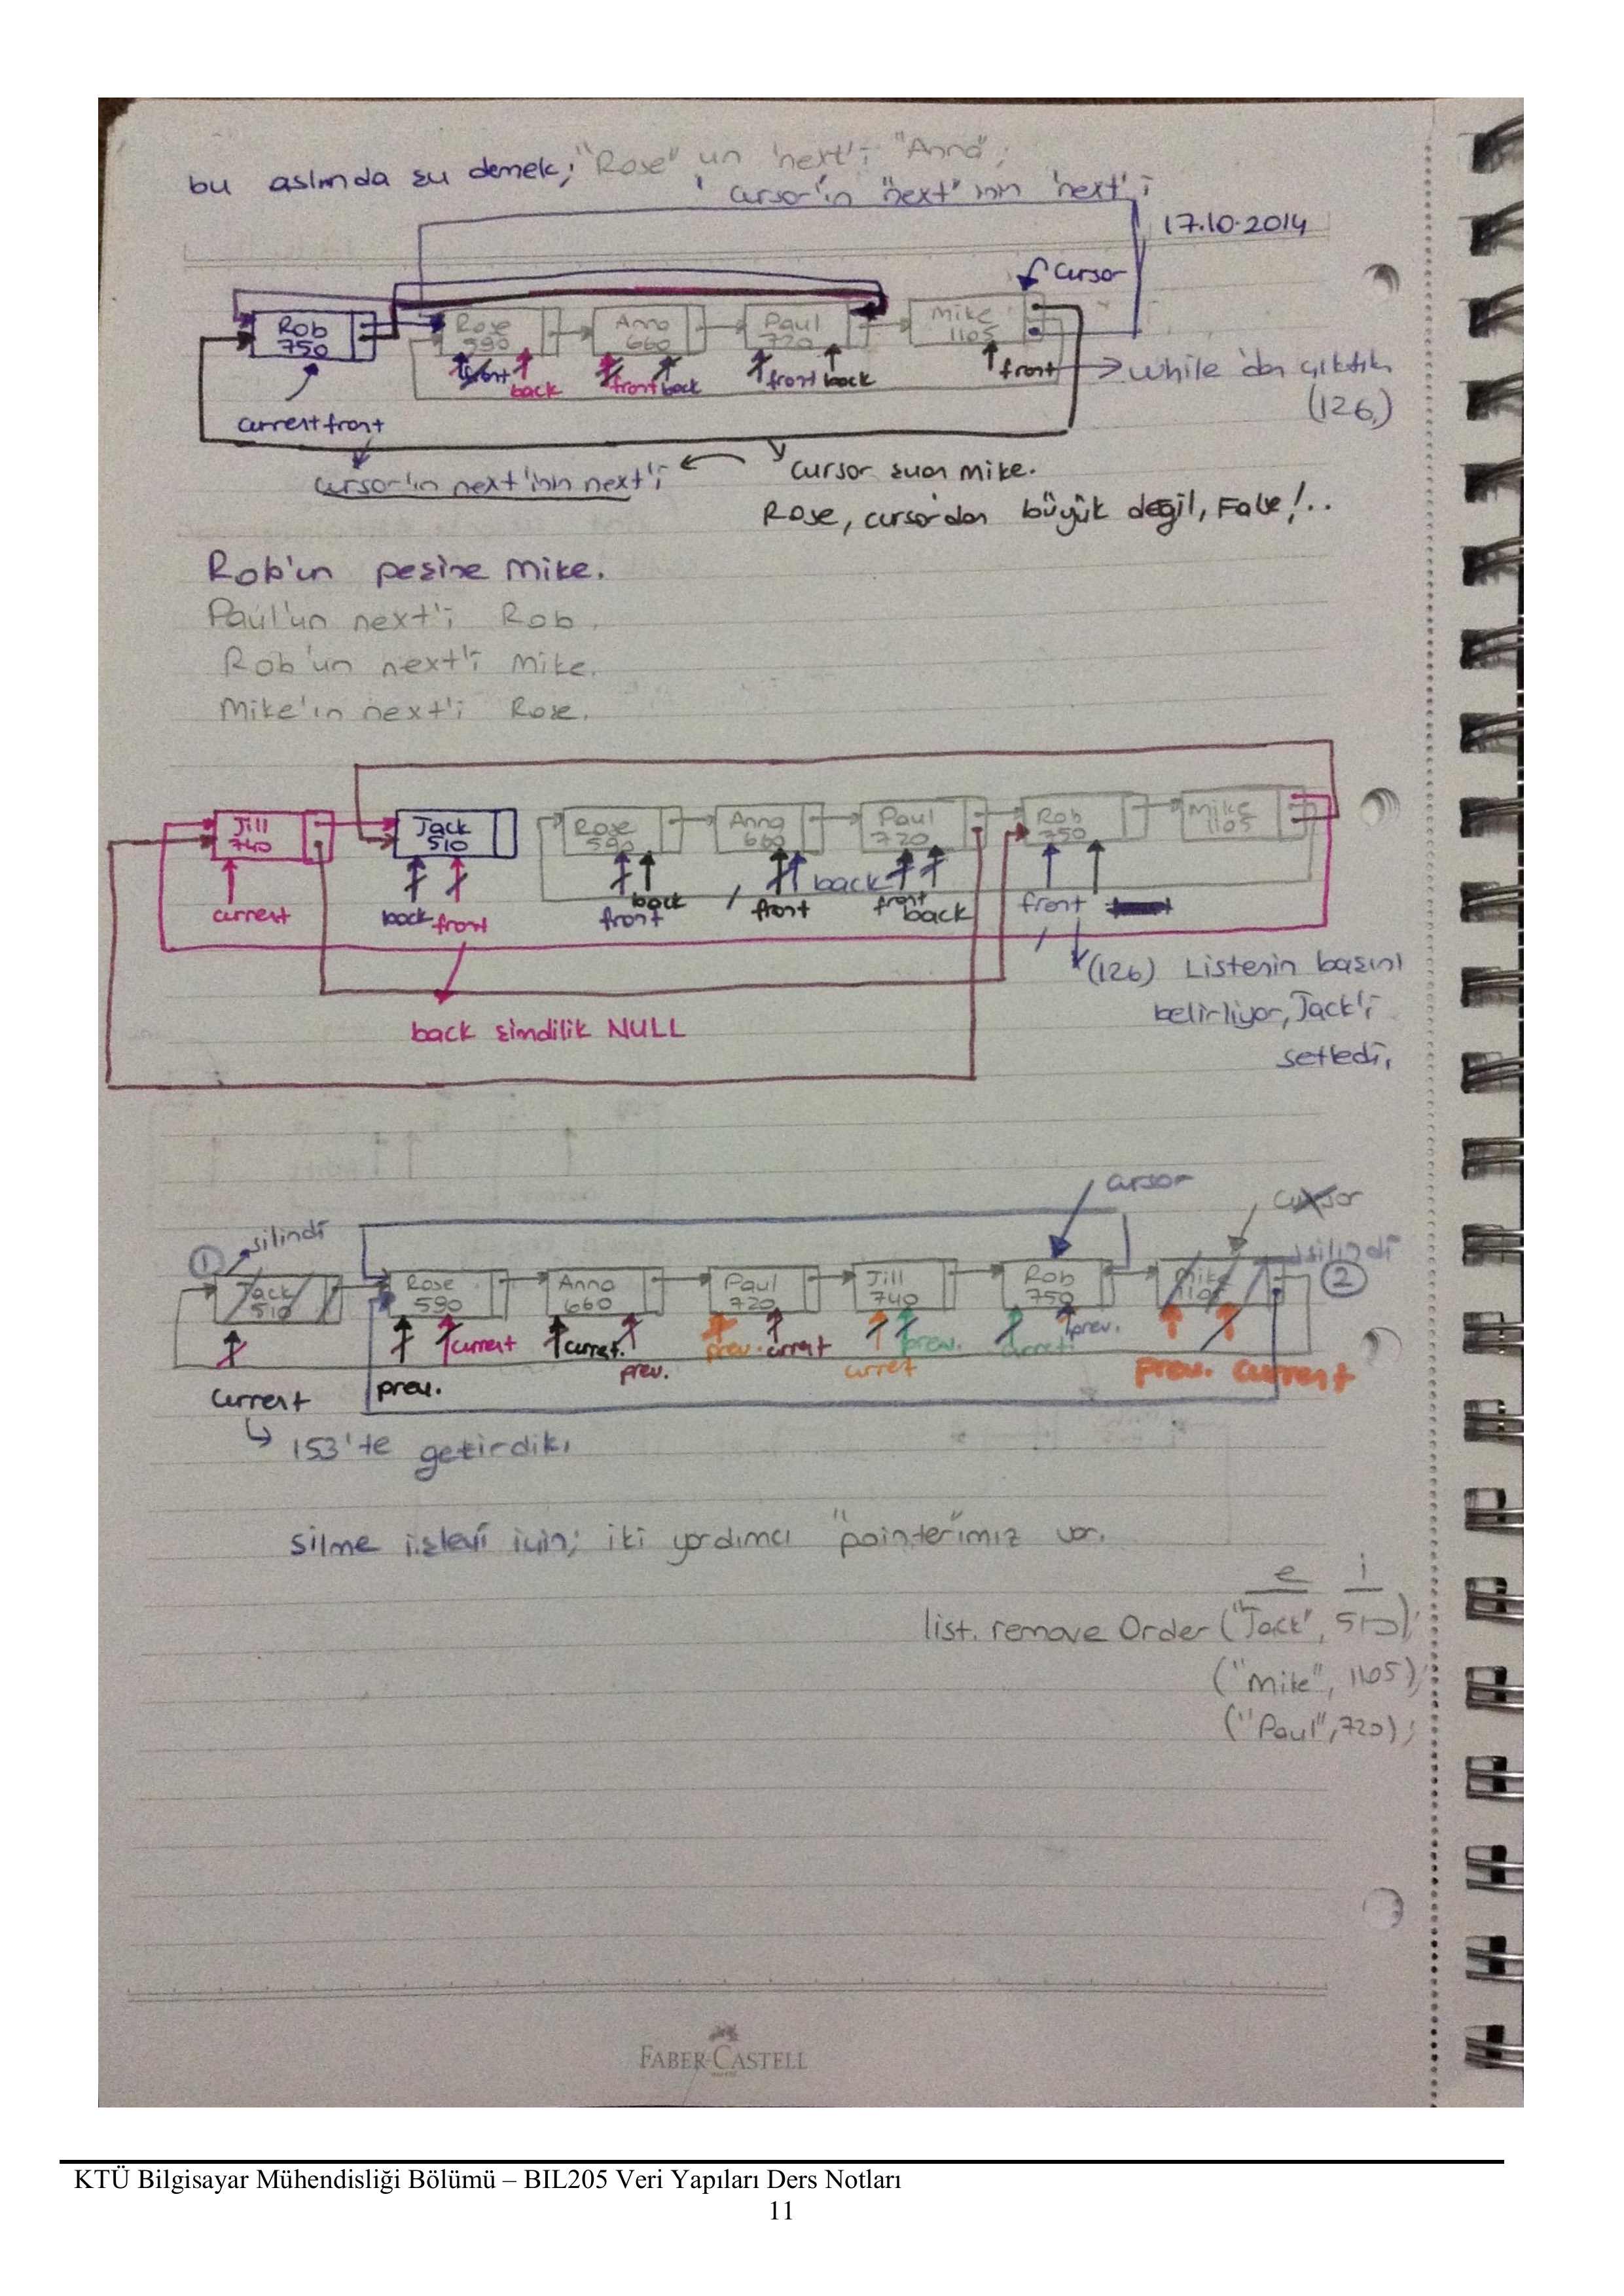 bu aslında şu demek; "Rose" un 'next'i "Anna";
cursor'ın "next" inin 'next'i
17.10.2014
cursor
Rob 750
Rose 590
Anna 660
Paul 720
Mike 1105
front back front back front back front
while'dan çıktık (126)
current front
cursor'ın next'inin next'i
cursor şuan Mike.
Rose, cursor'dan büyük değil, False!..
Rob'un peşine Mike.
Paul'un next'i Rob.
Rob'un next'i Mike.
Mike'ın next'i Rose.
Jill 740
Jack 510
Rose 590
Anna 660
Paul 720
Rob 750
Mike 1105
current back front front back front back front back front
(126) Listenin başını
belirliyor, Jack'i
setledi.
back şimdilik NULL
cursor cursor
1 silindi
silindi 2
Jack 510
Rose 590
Anna 660
Paul 720
Jill 740
Rob 750
Mike 1105
current prev. current current prev. prev. current curret prev. current prev. prev. current
153'te getirdik.
silme işlevi için; iki yardımcı "pointer"ımız var.
e i
list. remove Order ("Jack", 510);
("Mike", 1105);
("Paul", 720);
FABER-CASTELL
KTÜ Bilgisayar Mühendisliği Bölümü – BIL205 Veri Yapıları Ders Notları
11